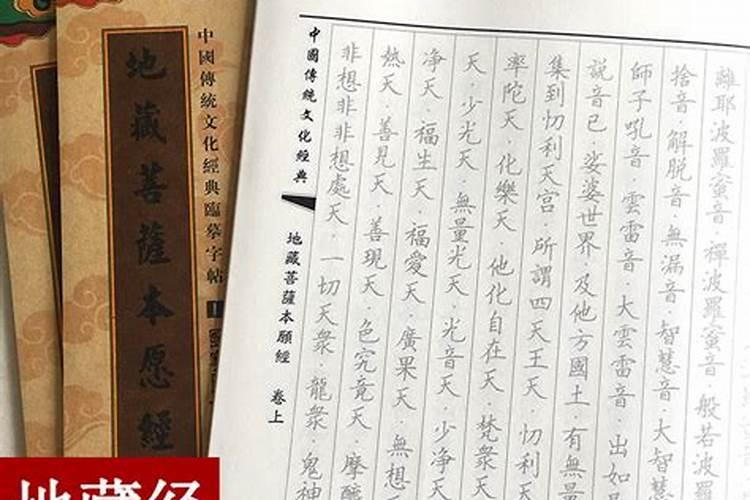 離耶波羅蜜音禪波羅蜜音般若波羅
捨音解脫音無漏音智慧音大智慧
師子吼音雲雷音大雲雷音出如是
說音已娑婆世界及他方國土有無量
集到忉利天宮所謂四天王天忉利天
率陀天化樂天他化自在天梵衆天
天少光天無量光天光音天少淨天
淨天福生天福愛天廣果天無想
熱天善見天善現天色究竟天摩醯
非想非非想處天一切天衆龍衆鬼神
中國傳統文化經典
地藏菩薩本願經 卷上
中國傳統文化經典臨摹字帖
地藏菩薩本愿經
地藏经